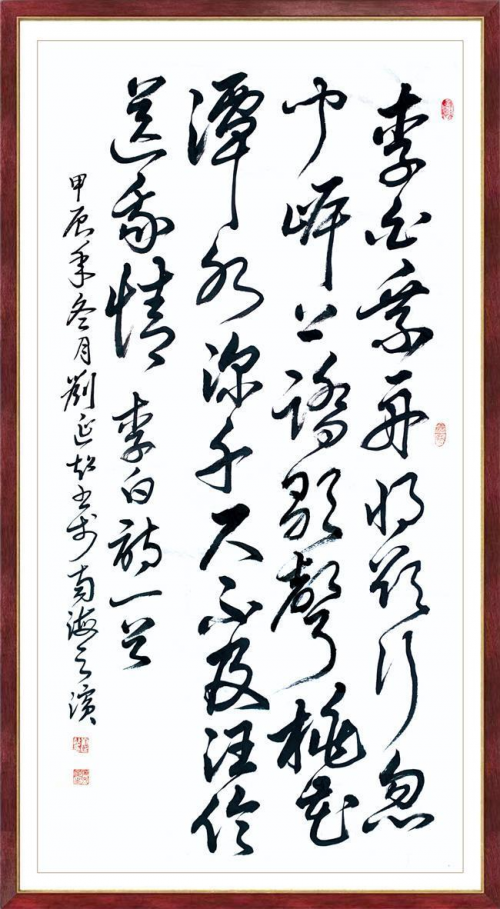 李白乘舟將欲行忽
聞岸上踏歌聲桃花
潭水深千尺不及汪倫
送我情 李白詩一首
甲辰年冬月劉延超書於南海之濱